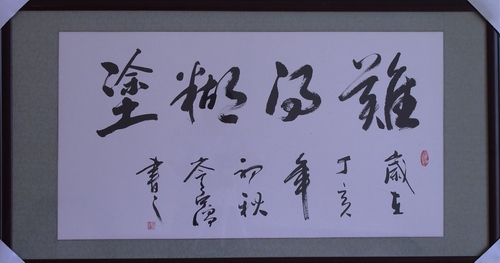 難得糊塗
歲在
丁亥
年
初秋
書之